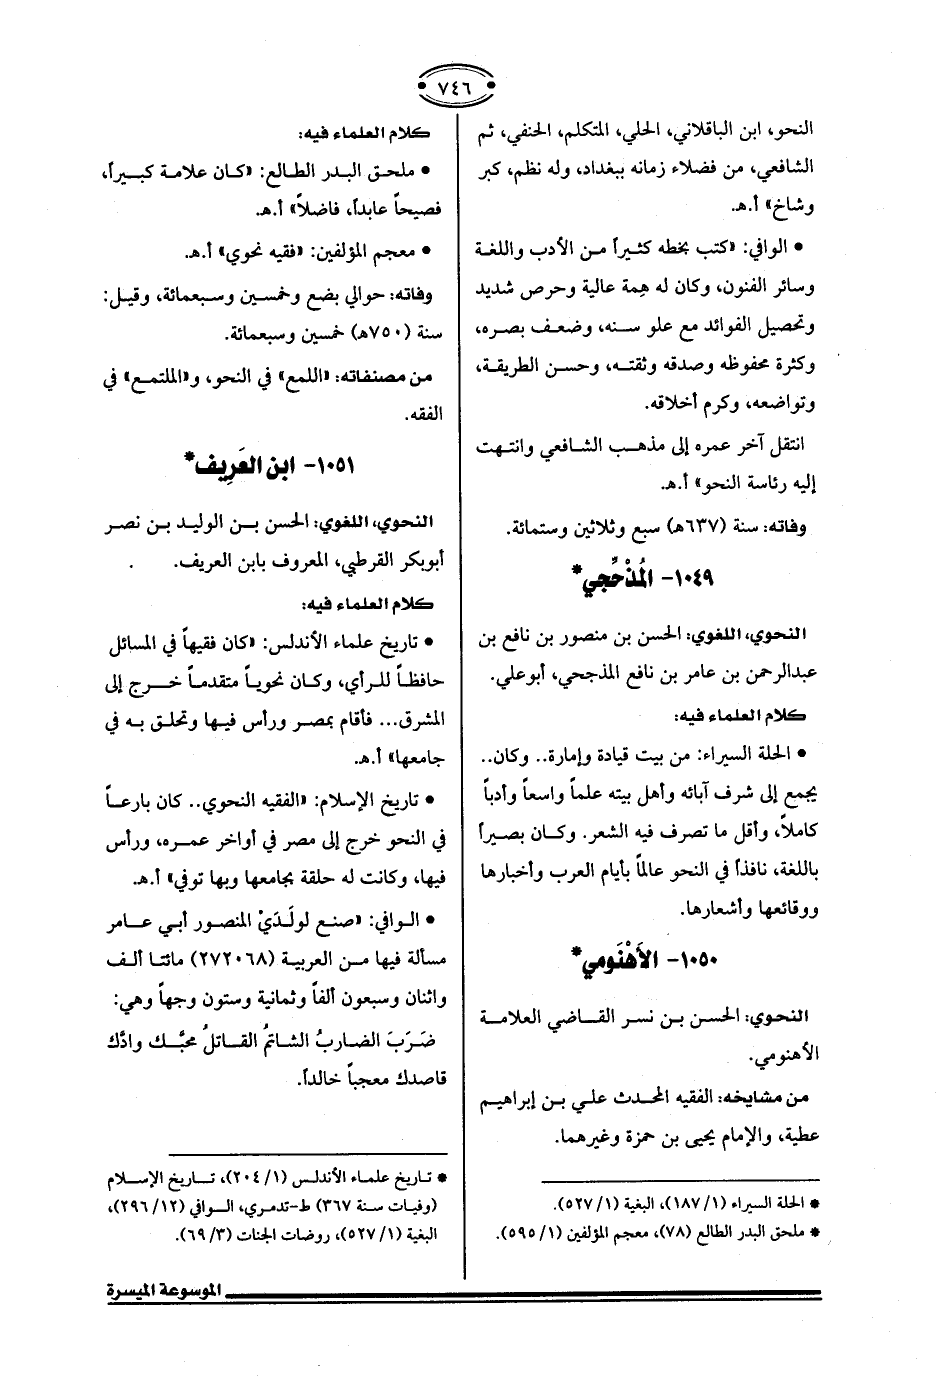 ٧٤٦
النحو، ابن الباقلاني، الحلي، المتكلم، الحنفي، ثم
الشافعي، من فضلاء زمانه ببغداد، وله نظم، كبر
وشاخ» أ.هـ.
• الوافي: «كتب بخطه كثيراً من الأدب واللغة
وسائر الفنون، وكان له هِمة عالية وحرص شديد
وتحصيل الفوائد مع علو سنه، وضعف بصره،
وكثرة محفوظه وصدقه وثقته، وحسن الطريقة،
وتواضعه، وكرم أخلاقه.
انتقل آخر عمره إلى مذهب الشافعي وانتهت
إليه رئاسة النحو» أ.هـ.
وفاته: سنة (٦٣٧هـ) سبع وثلاثين وستمائة.
١٠٤٩- المُذْحِجي*
النحوي، اللغوي: الحسن بن منصور بن نافع بن
عبدالرحمن بن عامر بن نافع المذجحي، أبوعلي.
كلام العلماء فيه:
• الحلة السيراء: من بيت قيادة وإمارة.. وكان..
يجمع إلى شرف آبائه وأهل بيته علماً واسعاً وأدباً
كاملاً، وأقل ما تصرف فيه الشعر. وكان بصيراً
باللغة، نافذاً في النحو عالماً بأيام العرب وأخبارها
ووقائعها وأشعارها.
١٠٥٠- الأَهْنَومي*
النحوي: الحسن بن نسر القاضي العلامة
الأهنومي.
من مشايخه: الفقيه المحدث علي بن إبراهيم
عطية، والإمام يحيى بن حمزة وغيرهما.
* الحلة السيراء (١/ ١٨٧)، البغية (١/ ٥٢٧).
* ملحق البدر الطالع (٧٨)، معجم المؤلفين (١/ ٥٩٥).
كلام العلماء فيه:
• ملحق البدر الطالع: «كان علامة كبيراً،
فصيحاً عابداً، فاضلاً» أ.هـ.
• معجم المؤلفين: «فقيه نحوي» أ.هـ.
وفاته: حوالي بضع وخمسين وسبعمائة، وقيل:
سنة (٧٥٠هـ) خمسين وسبعمائة.
من مصنفاته: «اللمع» في النحو، و«الملتمع» في
الفقه.
١٠٥١- ابن العَرِيف*
النحوي، اللغوي: الحسن بن الوليد بن نصر
أبوبكر القرطبي، المعروف بابن العريف.
كلام العلماء فيه:
• تاريخ علماء الأندلس: «كان فقيهاً في المسائل
حافظاً للرأي، وكان نحوياً متقدماً خرج إلى
المشرق... فأقام بمصر ورأس فيها وتحلق به في
جامعها» أ.هـ.
• تاريخ الإسلام: «الفقيه النحوي.. كان بارعاً
في النحو خرج إلى مصر في أواخر عمره، ورأس
فيها، وكانت له حلقة بجامعها وبها توفي» أ.هـ.
• الوافي: «صنع لولَدَيْ المنصور أبي عامر
مسألة فيها من العربية (٢٧٢٠٦٨) مائتا ألف
واثنان وسبعون ألفاً وثمانية وستون وجهاً وهي:
ضَرَبَ الضاربُ الشاتمُ القاتلُ محبَّك وادَّك
قاصدك معجباً خالداً.
* تاريخ علماء الأندلس (١/ ٢٠٤)، تاريخ الإسلام
(وفيات سنة ٣٦٧) ط-تدمري، الوافي (١٢/ ٢٩٦)،
البغية (١/ ٥٢٧)، روضات الجنات (٣/ ٦٩).
الموسوعة الميسرة